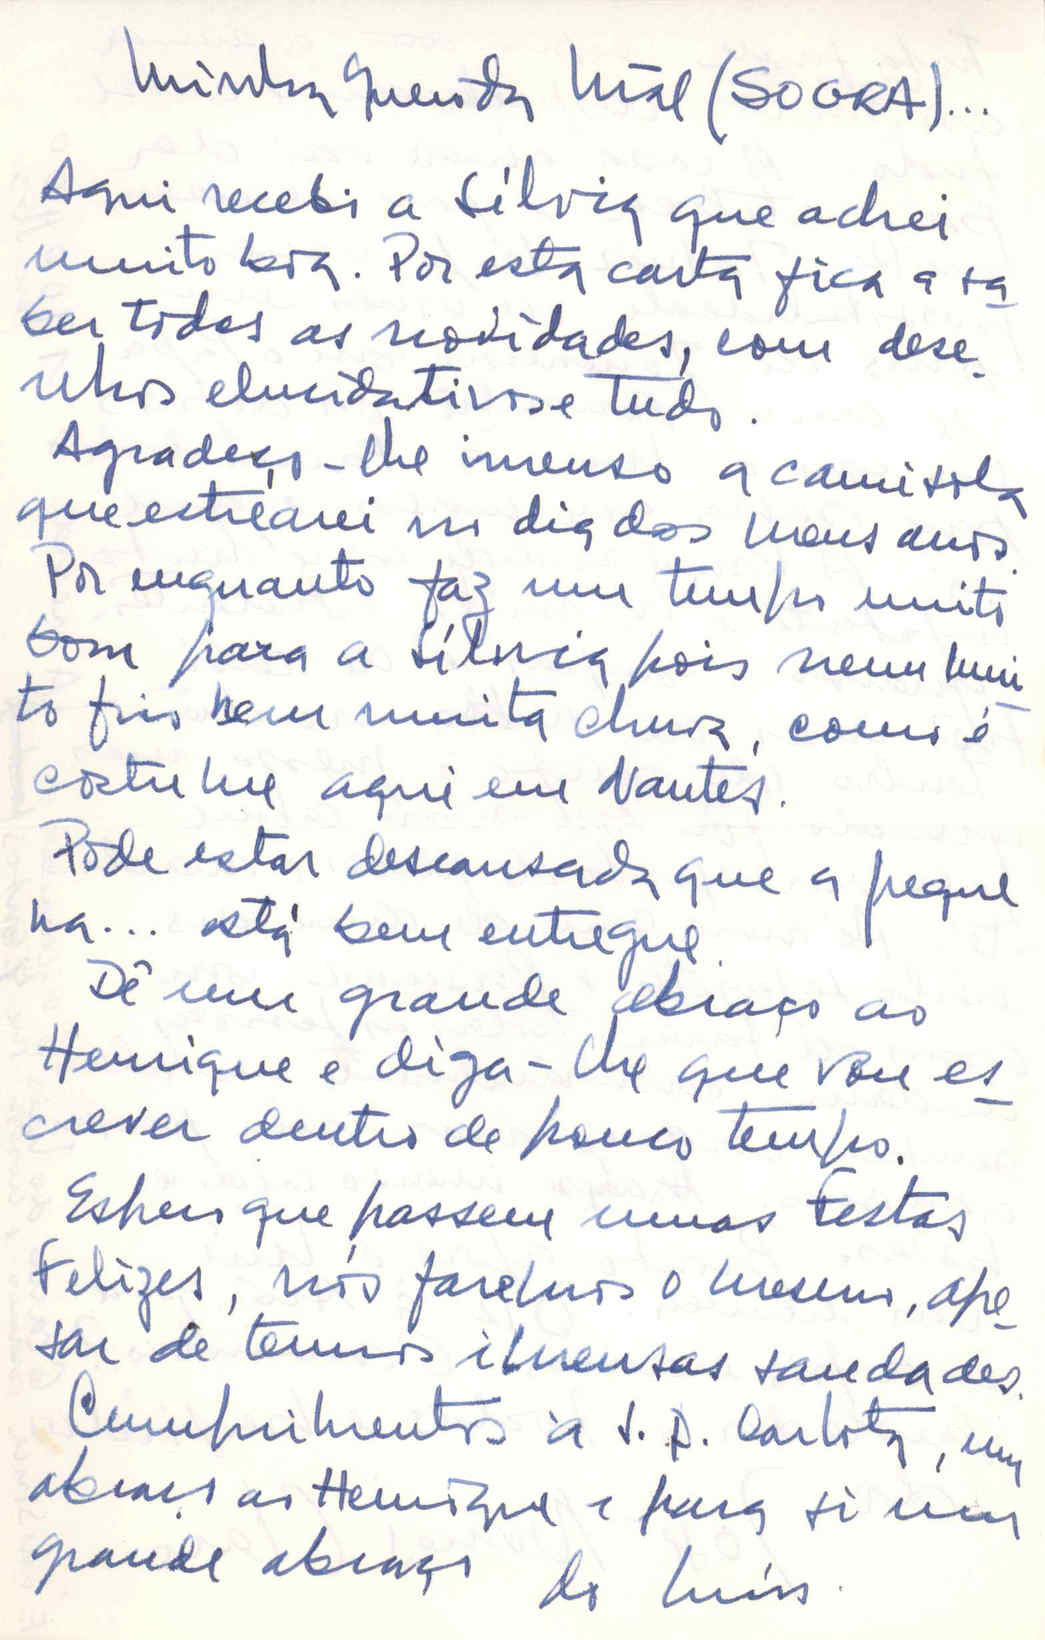 Minha Querida Mãe (SOGRA)...
Aqui recebi a Sílvia que achei
muito boa. Por esta carta fica a sa_
ber todas as novidades, com dese_
nhos elucidativos e tudo.
Agradeço-lhe imenso a camisola
que estrearei no dia dos meus anos.
Por enquanto faz um tempo muito
bom para a Sílvia pois nem mui_
to frio nem muita chuva, como é
costume aqui em Nantes.
Pode estar descansada que a peque
na... está bem entregue.
Dê um grande abraço ao
Henrique e diga-lhe que vou es_
crever dentro de pouco tempo.
Espero que passem umas Festas
Felizes, nós faremos o mesmo, ape_
sar de termos imensas saudades.
Cumprimentos à S. D. Carlota, um
abraço ao Henrique e para si um
grande abraço do Luís.